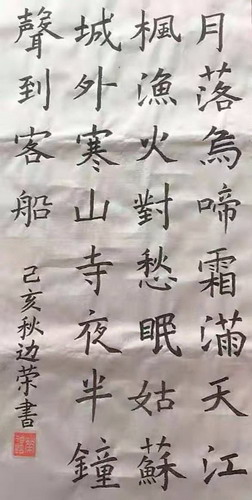 月落烏啼霜滿天江
楓漁火對愁眠姑蘇
城外寒山寺夜半鐘
聲到客船
己亥秋边荣書